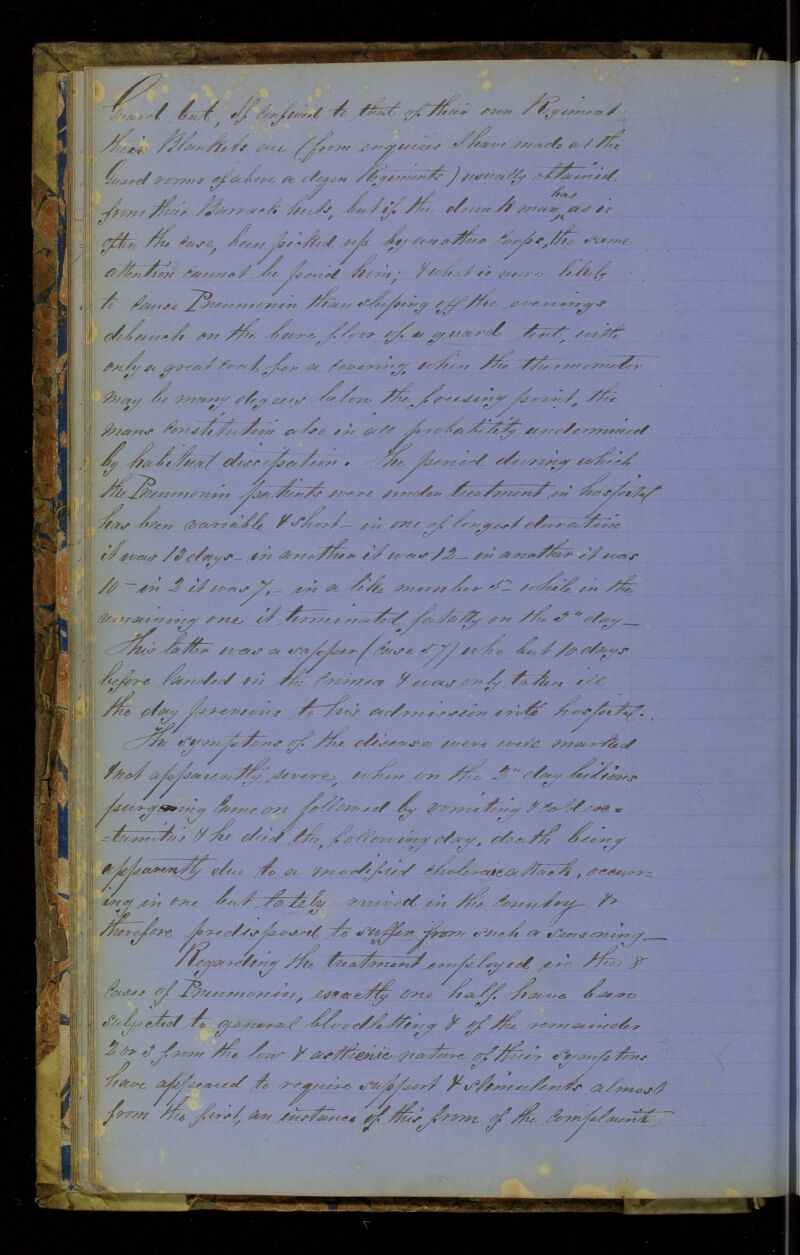 Guard but, if confined to that of their own Regiment
their Blankets are (from enquiries I have made at the
Guard rooms of above a dozen Regiments) usually obtained
from their Barrack huts, but if the drunk man, has as is
often the case, been picked up by another Corps, the same
attention cannot be paid him; & what is more likely
to cause Pneumonia than sleeping off the evenings
debauch on the bare floor of a guard tent, with
only a great coat for a covering, when the thermometer
may be many degrees below the freesing point, the
mans constitution also in all probability undermined
by habitual dissipation. The period during which
the Pneumonia patients were under treatment in hospital
has been variable & short - in one of longest duration
it was 13 days - in another it was 12 - in another it was
10 - in 2 it was 7. - in a like number 5 - while in the
remaining one it terminated fatally on the 3" day -
This latter was a sapper (Case 57) who but 10 days
before landed in the Crimea & was only taken ill
the day previous to his admission into hospital.
The symptons of the disease were well marked
& not apparently severe, when on the 2" day bilious
purging came on followed by vomiting & cold ex=
=tremities & he died the following day, death being
apparently due to a modified choleraic attack, occurr=
ing in one but lately arrived in the country &
therefore predisposed to suffer from such a seasoning -
Regarding the treatment employed in the 8
cases of Pneumonia, exactly one half have been
subjected to general bloodletting & of the remainder
2 or 3 from the low & asthenic nature of their symptons
have appeared to require support & stimulents almost
from the first, an instance of this from of the complaint